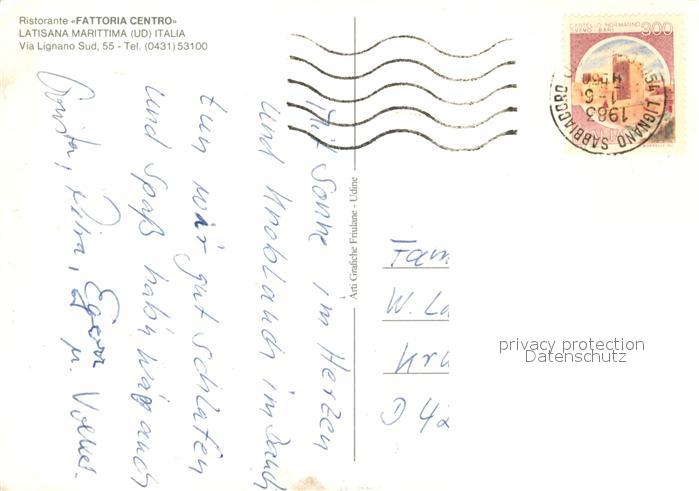 Ristorante «FATTORIA CENTRO»
LATISANA MARITTIMA (UD) ITALIA
Via Lignano Sud, 55 - Tel. (0431) 53100
Mit Sonne im Herzen
und Knoblauch im Bauch
tun wir gut schlafen
und Spaß hab'n wir auch
Petra, Egon
u. Volker
Arti Grafiche Friulane - Udine
CASTELLO NORMANNO
SVEVO BARI
300
LIGNANO SABBIADORO
1-6
1983
Fam
W. La
Kru
D 42
privacy protection
Datenschutz